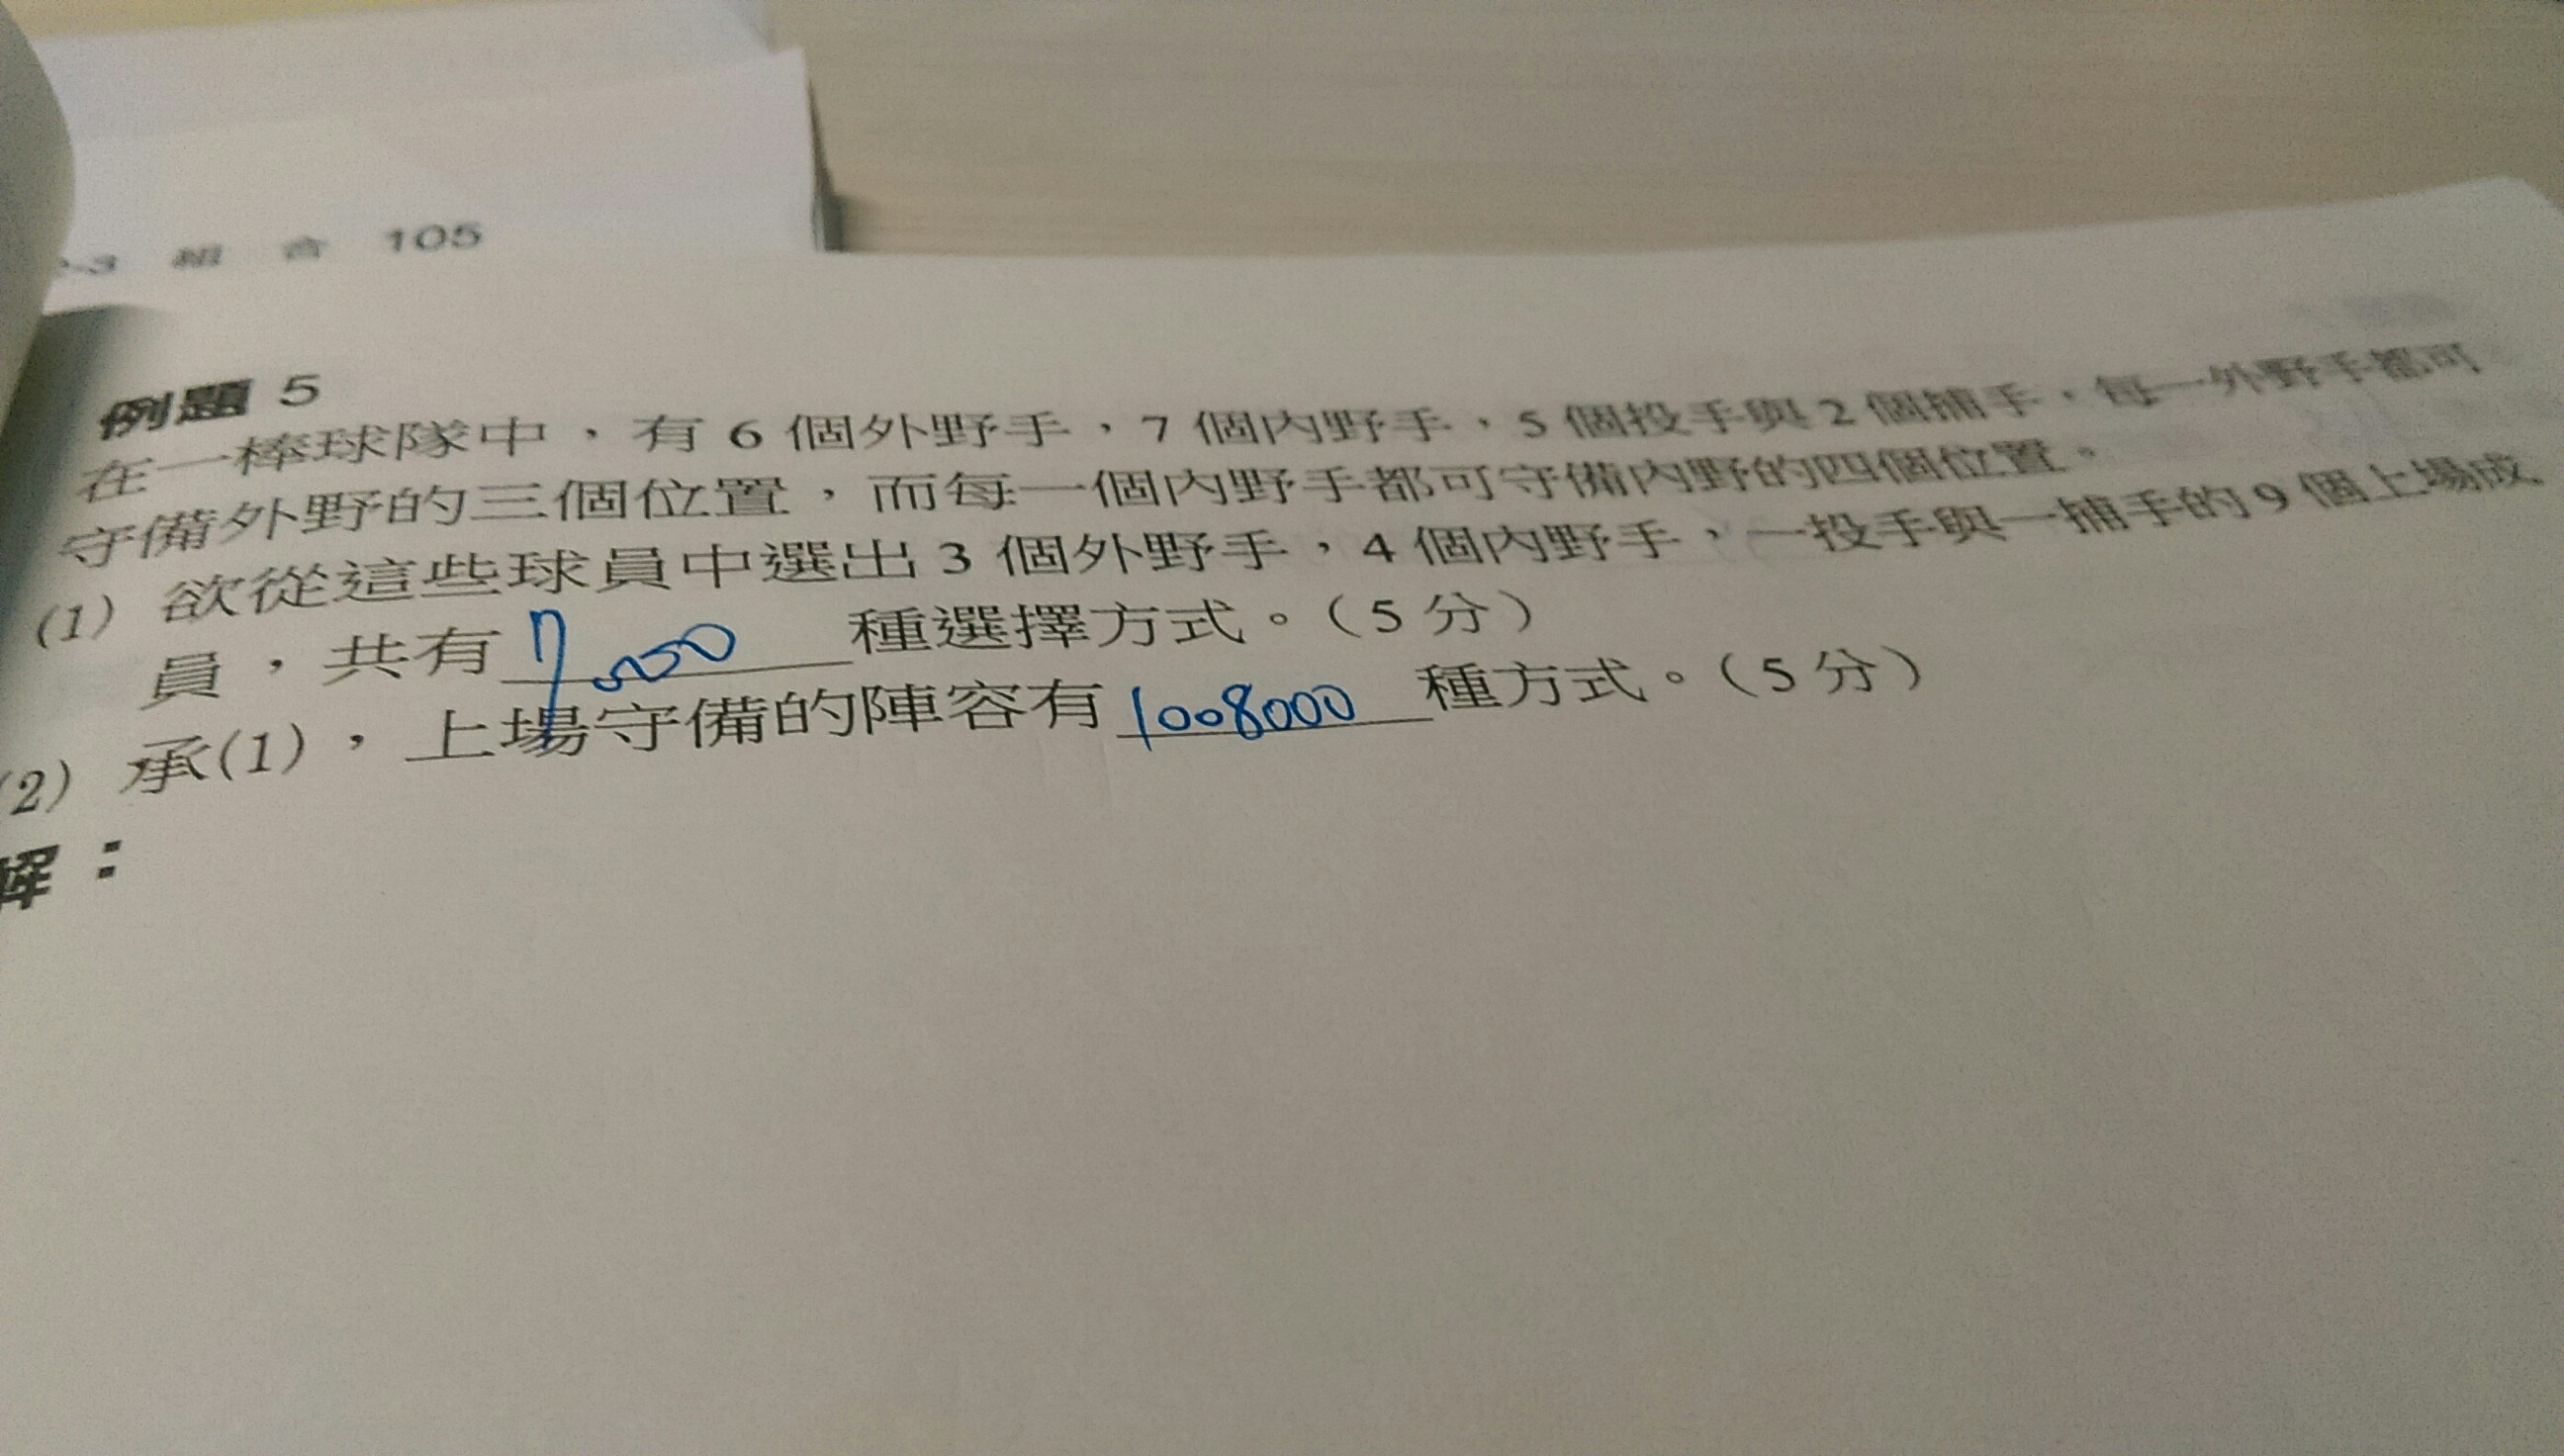 -3 組 合 105
例題 5
在一棒球隊中，有 6 個外野手，7 個內野手，5 個投手與 2 個捕手，每一外野手都可
守備外野的三個位置，而每一個內野手都可守備內野的四個位置。
(1) 欲從這些球員中選出 3 個外野手，4 個內野手，一投手與一捕手的 9 個上場成
員，共有 7000 種選擇方式。（5 分）
(2) 承(1)，上場守備的陣容有 1008000 種方式。（5 分）
解：